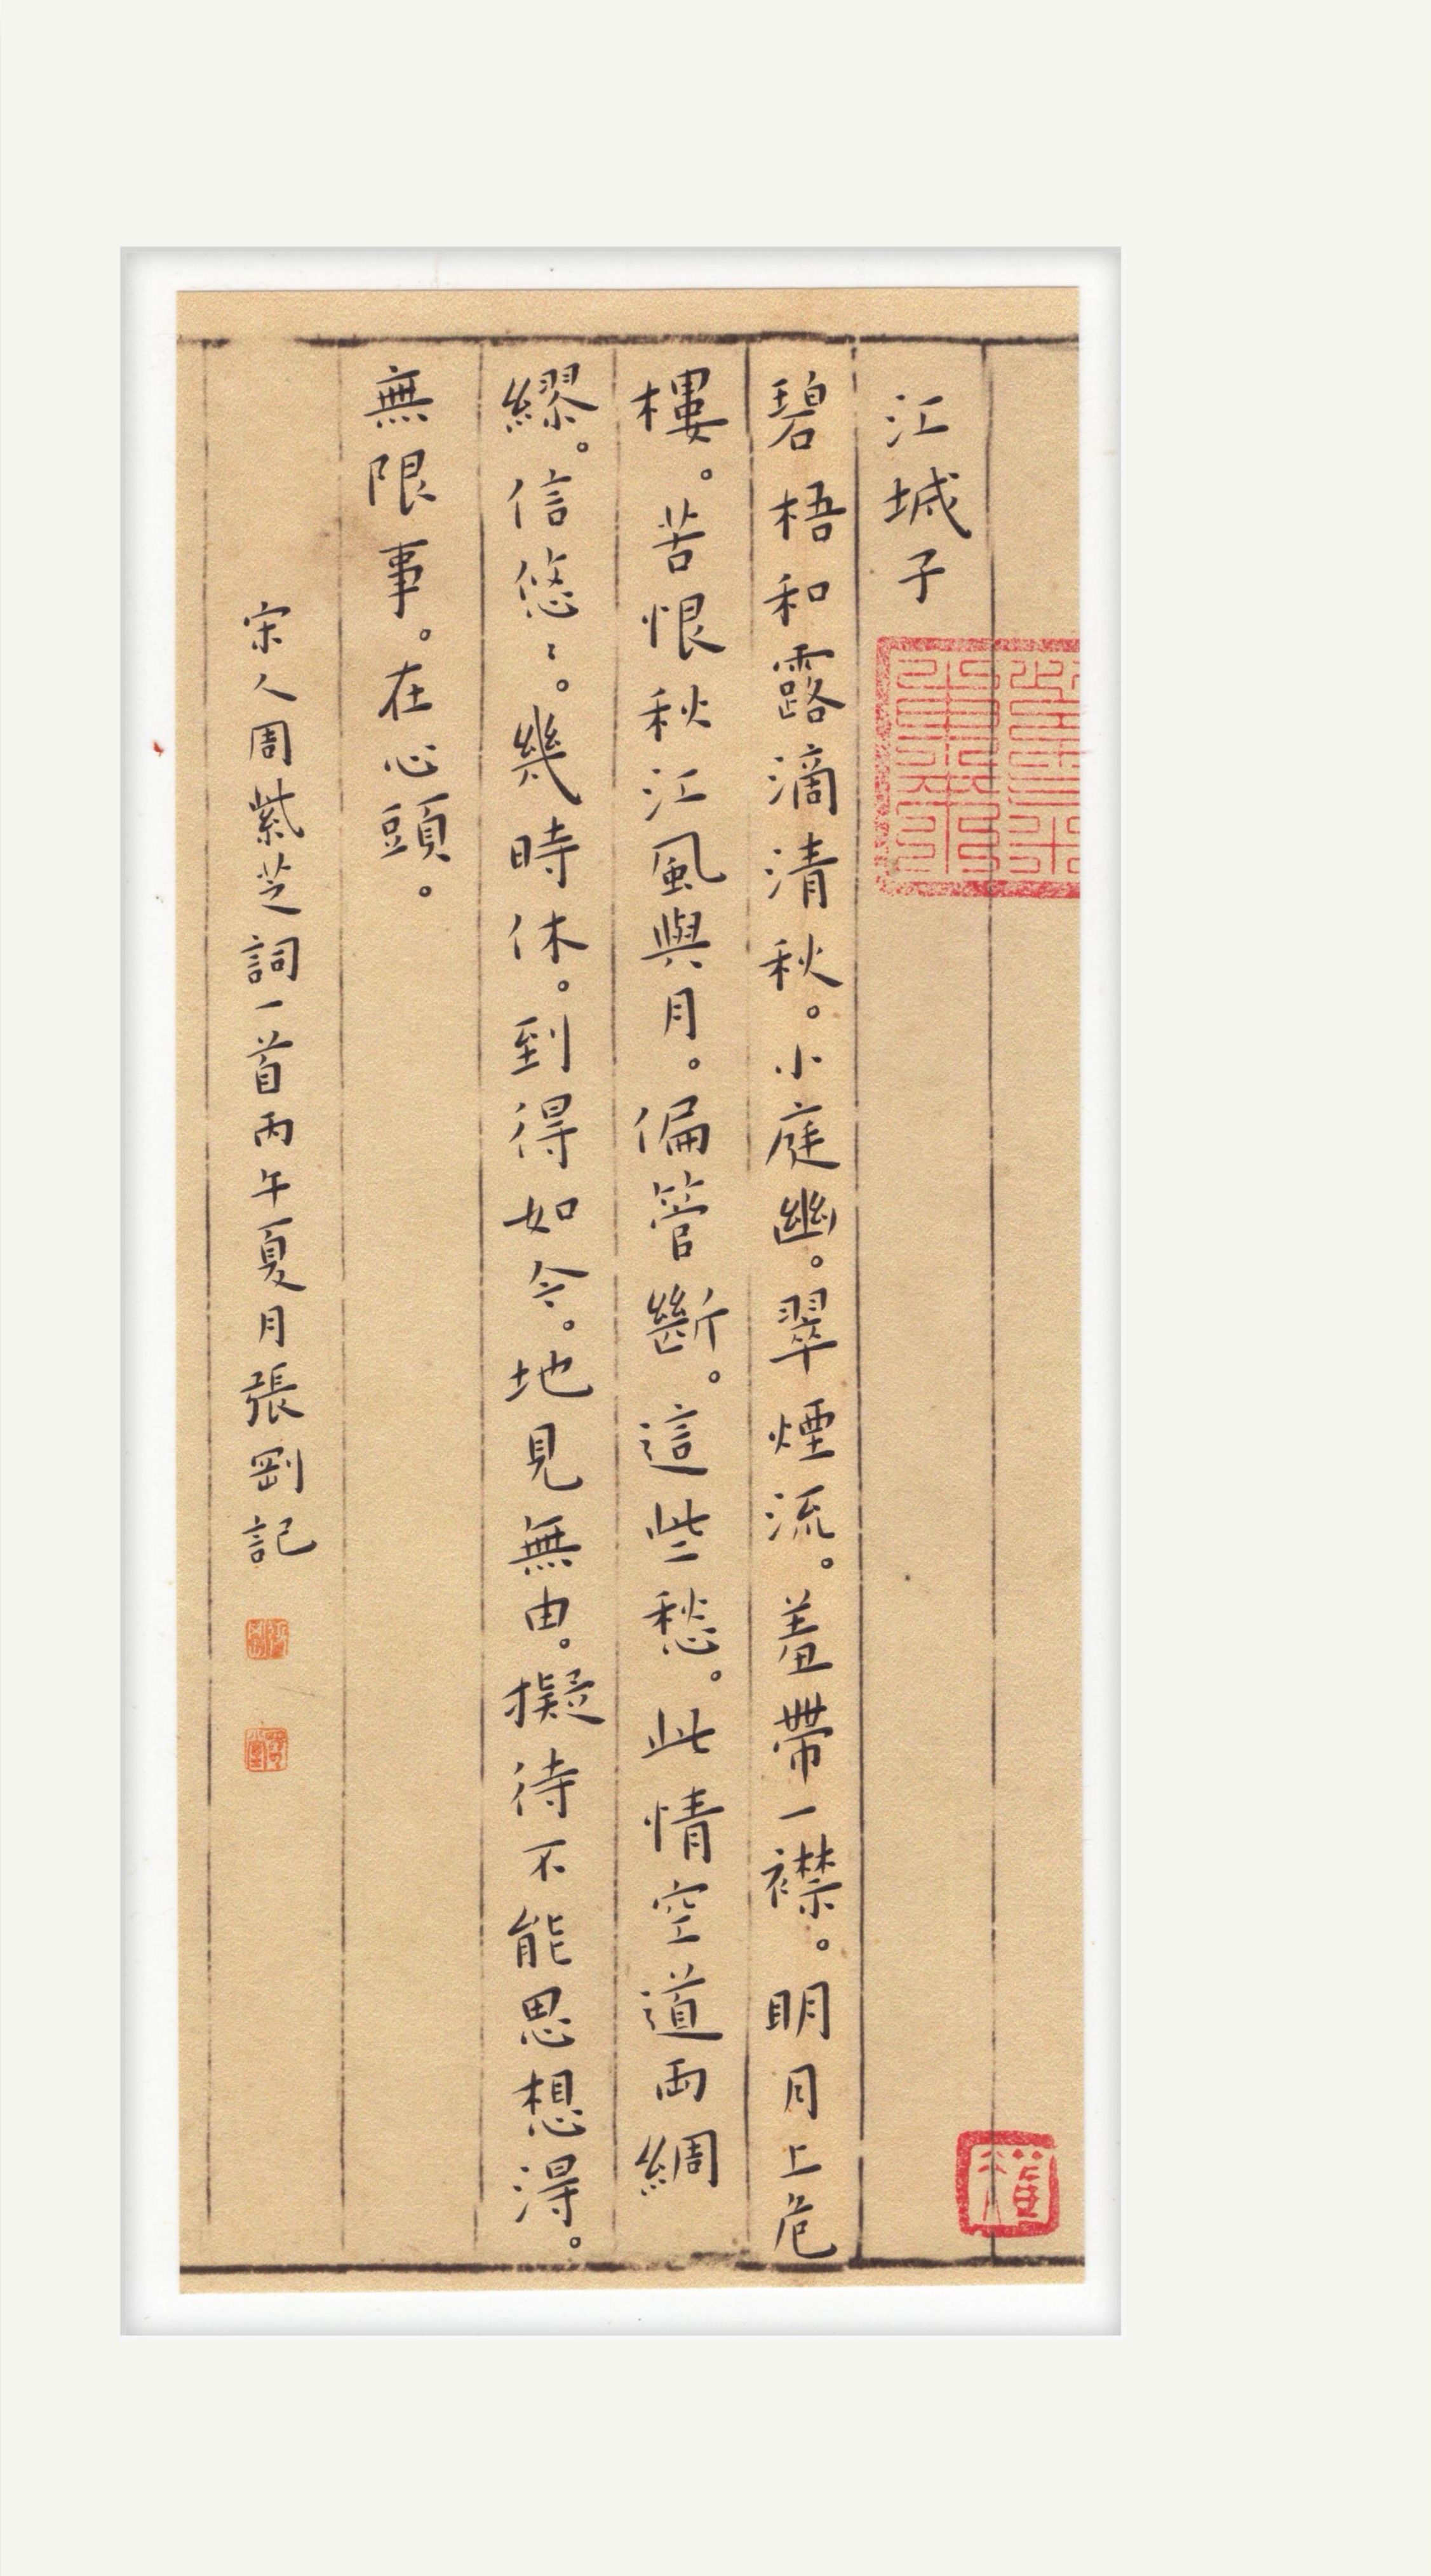 江城子
碧梧和露滴清秋。小庭幽。翠煙流。羞帶一襟。明月上危
樓。苦恨秋江風與月。偏管斷。這些愁。此情空道兩綢
繆。信悠〻。幾時休。到得如今。地見無由。擬待不能思想得。
無限事。在心頭。
宋人周紫芝詞一首丙午夏月張剛記